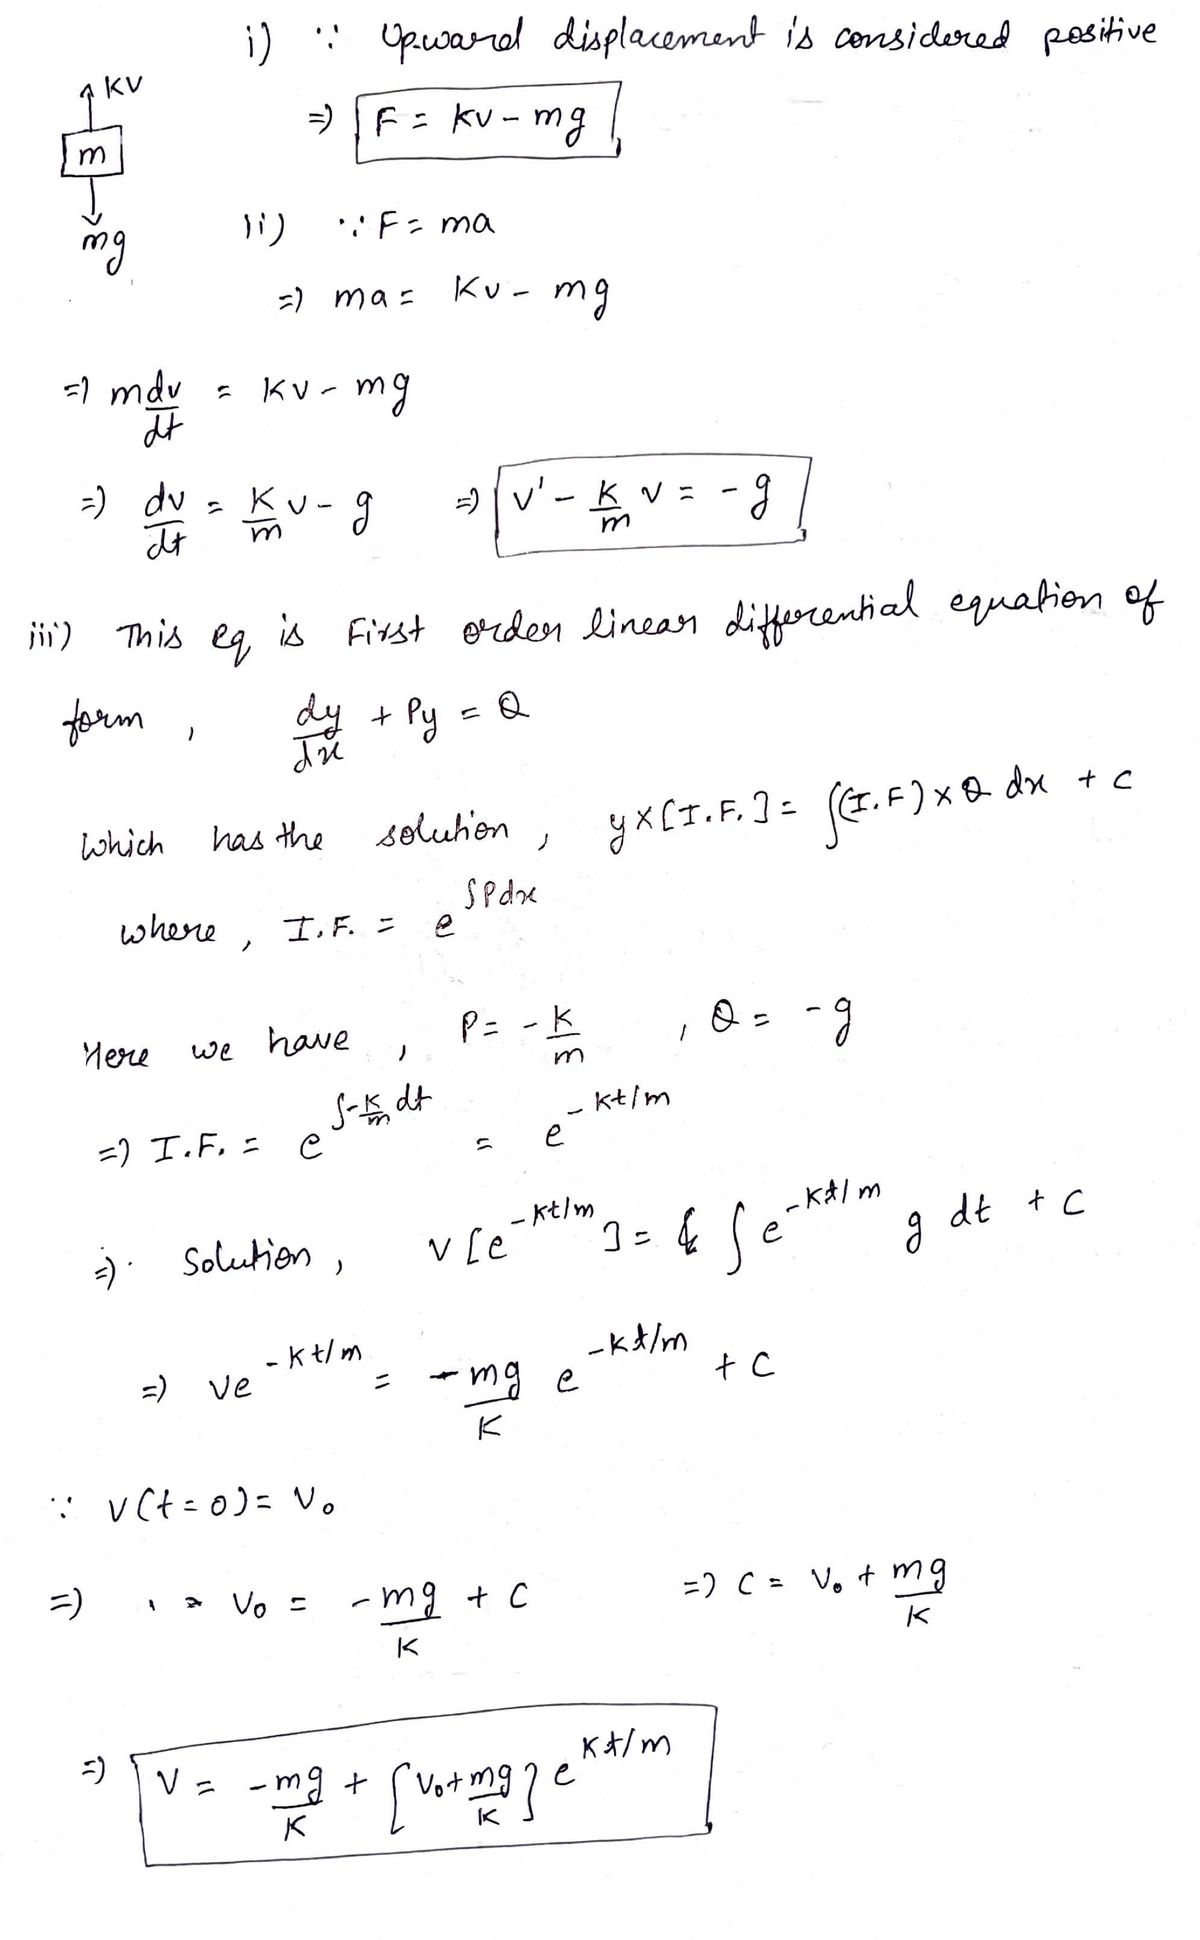 i) ∵ Upward displacement is considered positive
KV
⇒ F = kv - mg
m
mg
ii) ∵ F = ma
⇒ ma = Kv - mg
⇒ m dv/dt = kv - mg
⇒ dv/dt = K/m v - g ⇒ v' - K/m v = -g
iii) This eq is First order linear differential equation of
form, dy/dx + Py = Q
Which has the solution, y×[I.F.] = ∫(I.F)×Q dx + c
where, I.F. = e^∫Pdx
Here we have, P = -K/m, Q = -g
⇒ I.F. = e^∫-K/m dt = e^-kt/m
⇒ Solution, v[e^-kt/m] = ∫e^-kt/m g dt + C
⇒ ve^-kt/m = -mg/K e^-kt/m + C
∵ V(t=0) = V₀
⇒ V₀ = -mg/K + C ⇒ C = V₀ + mg/K
⇒ V = -mg/K + [V₀+mg/K] e^Kt/m